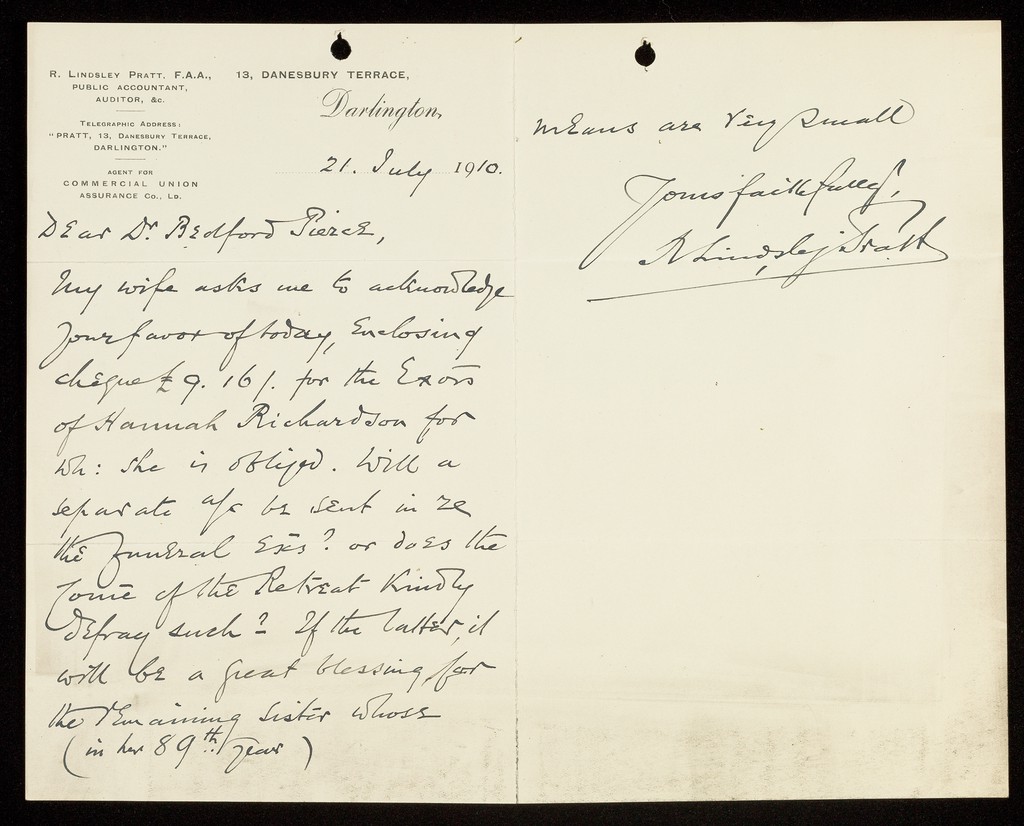 R. LINDSLEY PRATT, F.A.A.,
PUBLIC ACCOUNTANT,
AUDITOR, &c.
TELEGRAPHIC ADDRESS:
"PRATT, 13, DANESBURY TERRACE,
DARLINGTON."
AGENT FOR
COMMERCIAL UNION
ASSURANCE CO., LD.
13, DANESBURY TERRACE,
Darlington,
21. July 1910.
Dear Dr. Bedford Pierce,
My wife asks me to acknowledge
your favor of today, enclosing
cheque £9. 16/. for the Exors
of Hannah Richardson for
wh: she is obliged. Will a
separate a/c be sent in re
the funeral exs? or does the
Comee of the Retreat kindly
defray such? If the latter, it
will be a great blessing for
the remaining sister whose
(in her 89th year)
means are very small
Yours faithfully,
R Lindsley Pratt